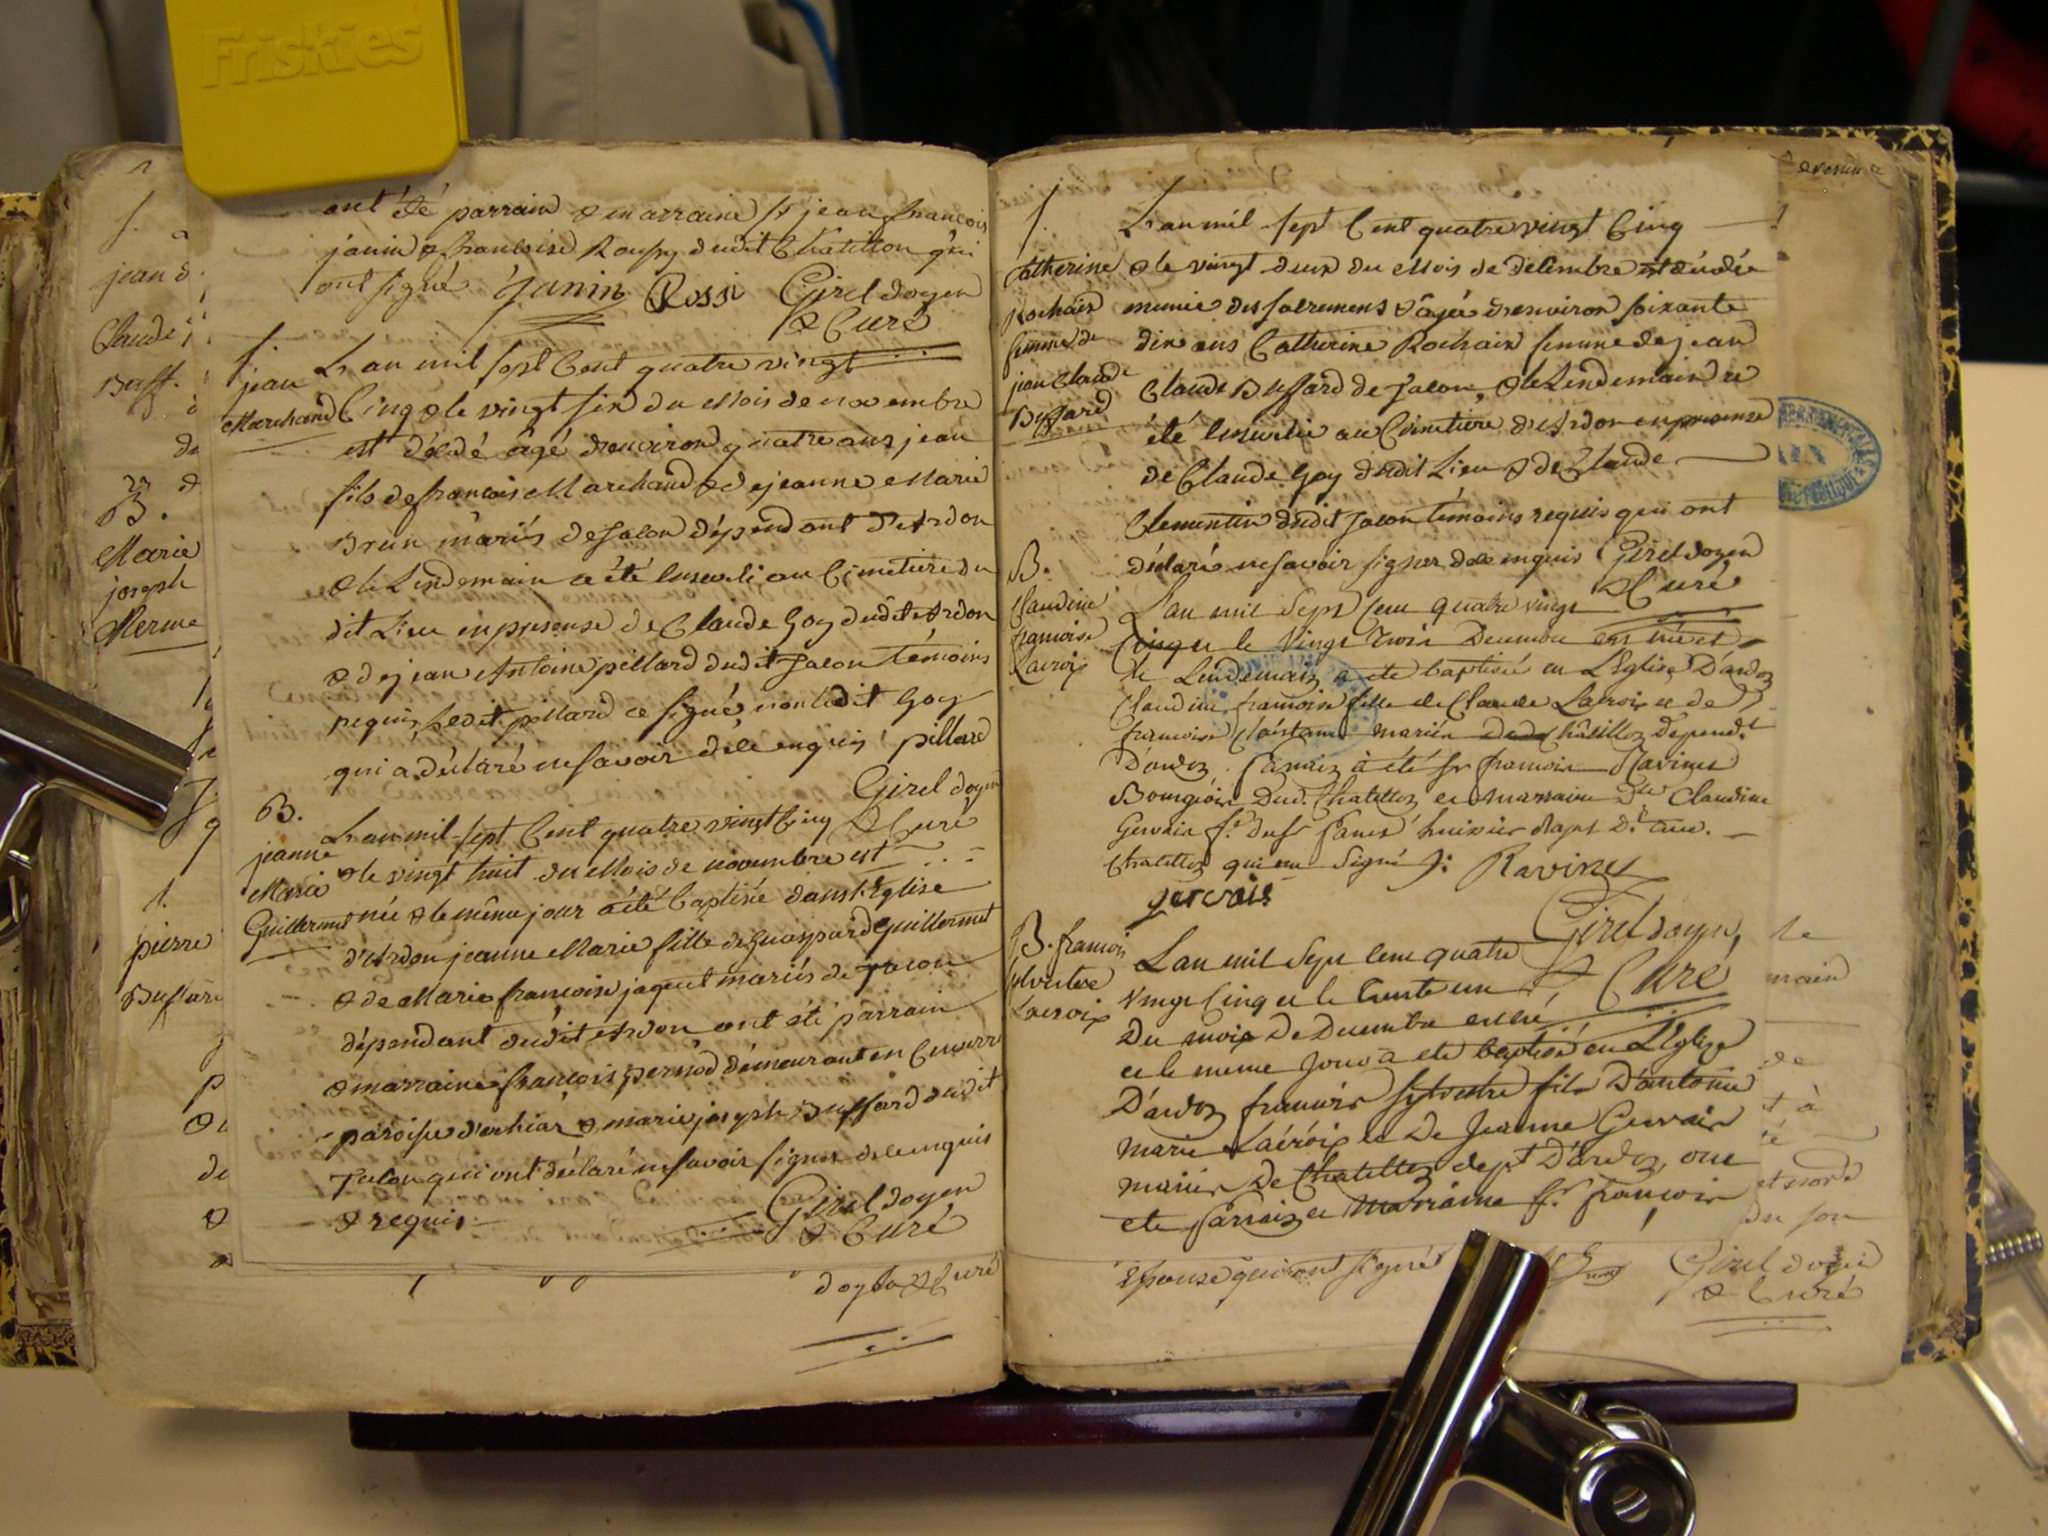 Friskies
ont été parrain & marraine Sr jean françois
janin & françoise Roussy dudit Chatillon qui
ont signé Janin Rossi Girel doyen
& Curé
S.
jean
Marchand
L'an mil sept Cent quatre vingt
Cinq & le vingt six du Mois de novembre
est décédé âgé d'environ quatre ans jean
fils de francois Marchand & de jeanne Marie
Brun mariés de Jalon dépendant d'Ardon
& le Lendemain a été Enseveli au Cimetiere du
dit Lieu en presense de Claude Goy dudit Ardon
& de jean Antoine pillard dudit Jalon témoins
requis, Ledit pillard a signé, non ledit Goy
qui a déclaré ne savoir de ce enquis pillard
Girel doyen
& Curé
B.
jeanne
Marie
Guillermet
L'an mil sept Cent quatre vingt Cinq
& le vingt huit du Mois de novembre est
née & le même jour a été baptisée dans l'Eglise
d'Ardon jeanne Marie fille de Guaspard Guillermet
& de Marie françoise jaquet mariés de Jalon
dépendant dudit Ardon ont été parrain
& marraine françois pernod démeurant en
paroisse d'ochiaz & marie joseph Buffard dudit
Jalon qui ont déclaré ne savoir signer de ce enquis
& requis
Girel doyen
& Curé
doyen & Curé
jean
Claude
Buff.
B.
Marie
joseph
Merme
S.
pierre
Buffard
S.
Catherine
Rochaix
femme de
jean Claude
Buffard
L'an mil sept Cent quatre vingt Cinq
& le vingt deux du Mois de décembre est décédée
munie des sacremens & âgée d'environ soixante
dix ans Catherine Rochaix femme de jean
Claude Buffard de Jalon, & le Lendemain a
été Ensevelie au Cimetiere d'Ardon en presense
de Claude Goy dudit Lieu & de Claude
Clementin dudit Jalon témoins requis qui ont
déclaré ne savoir signer de ce enquis Girel doyen
& Curé
B.
Claudine
françoise
Lacroix
L'an mil Sept Cent quatre vingt
Cinq et le Vingt Trois Decembre est née et
le Lendemain a eté baptisée en L'Eglise D'ardon
Claudine françoise fille de Claude Lacroix et de
françoise mariés Châtillon depend.t
D'ardon. Parrain à été Sr françois Ravinet
Bourgeois Dud. Chatillon et marraine Dlle Claudine
Gervais huissier
Chatillon qui ont Signé f: Ravinet
gervais
Girel doyen,
& Curé
B. françois
sylvestre
Lacroix
L'an mil Sept Cent quatre
vingt Cinq et le trente un
Du mois De Decembre est né
et le meme jour a ete baptisé en L'Eglize
D'ardon françois Sylvestre fils D'antoine
marie Lacroix et De Jeanne Gervais
mariés De Chatillon dep.t D'ardon, ont
eté parrain et marraine Sr. françois
Epouse qui ont signé
Girel doyen
& Curé